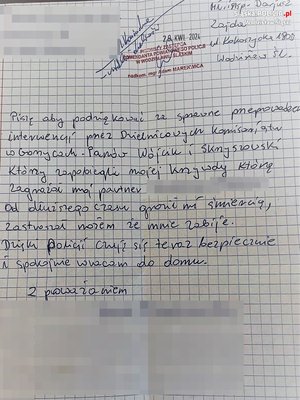 28 KWI. 2024
PIERWSZY ZASTĘPCA
KOMENDANTA POWIATOWEGO POLICJI
W WODZISŁAWIU ŚLĄSKIM
Wodzisław Śl.
Piszę aby podziękować za sprawne przeprowadzenie
interwencji przez Dzielnicowych Komisariatu
w Gorzycach. Panów Wójcik i Skrzyszowski
Którzy zapobiegli mojej krzywdy którą
zagrażał mój partner
Od dłuższego czasu groził mi śmiercią,
zastraszał nożem że mnie zabije.
Dzięki Policji czuję się teraz bezpiecznie
i spokojnie wracam do domu.
Z poważaniem